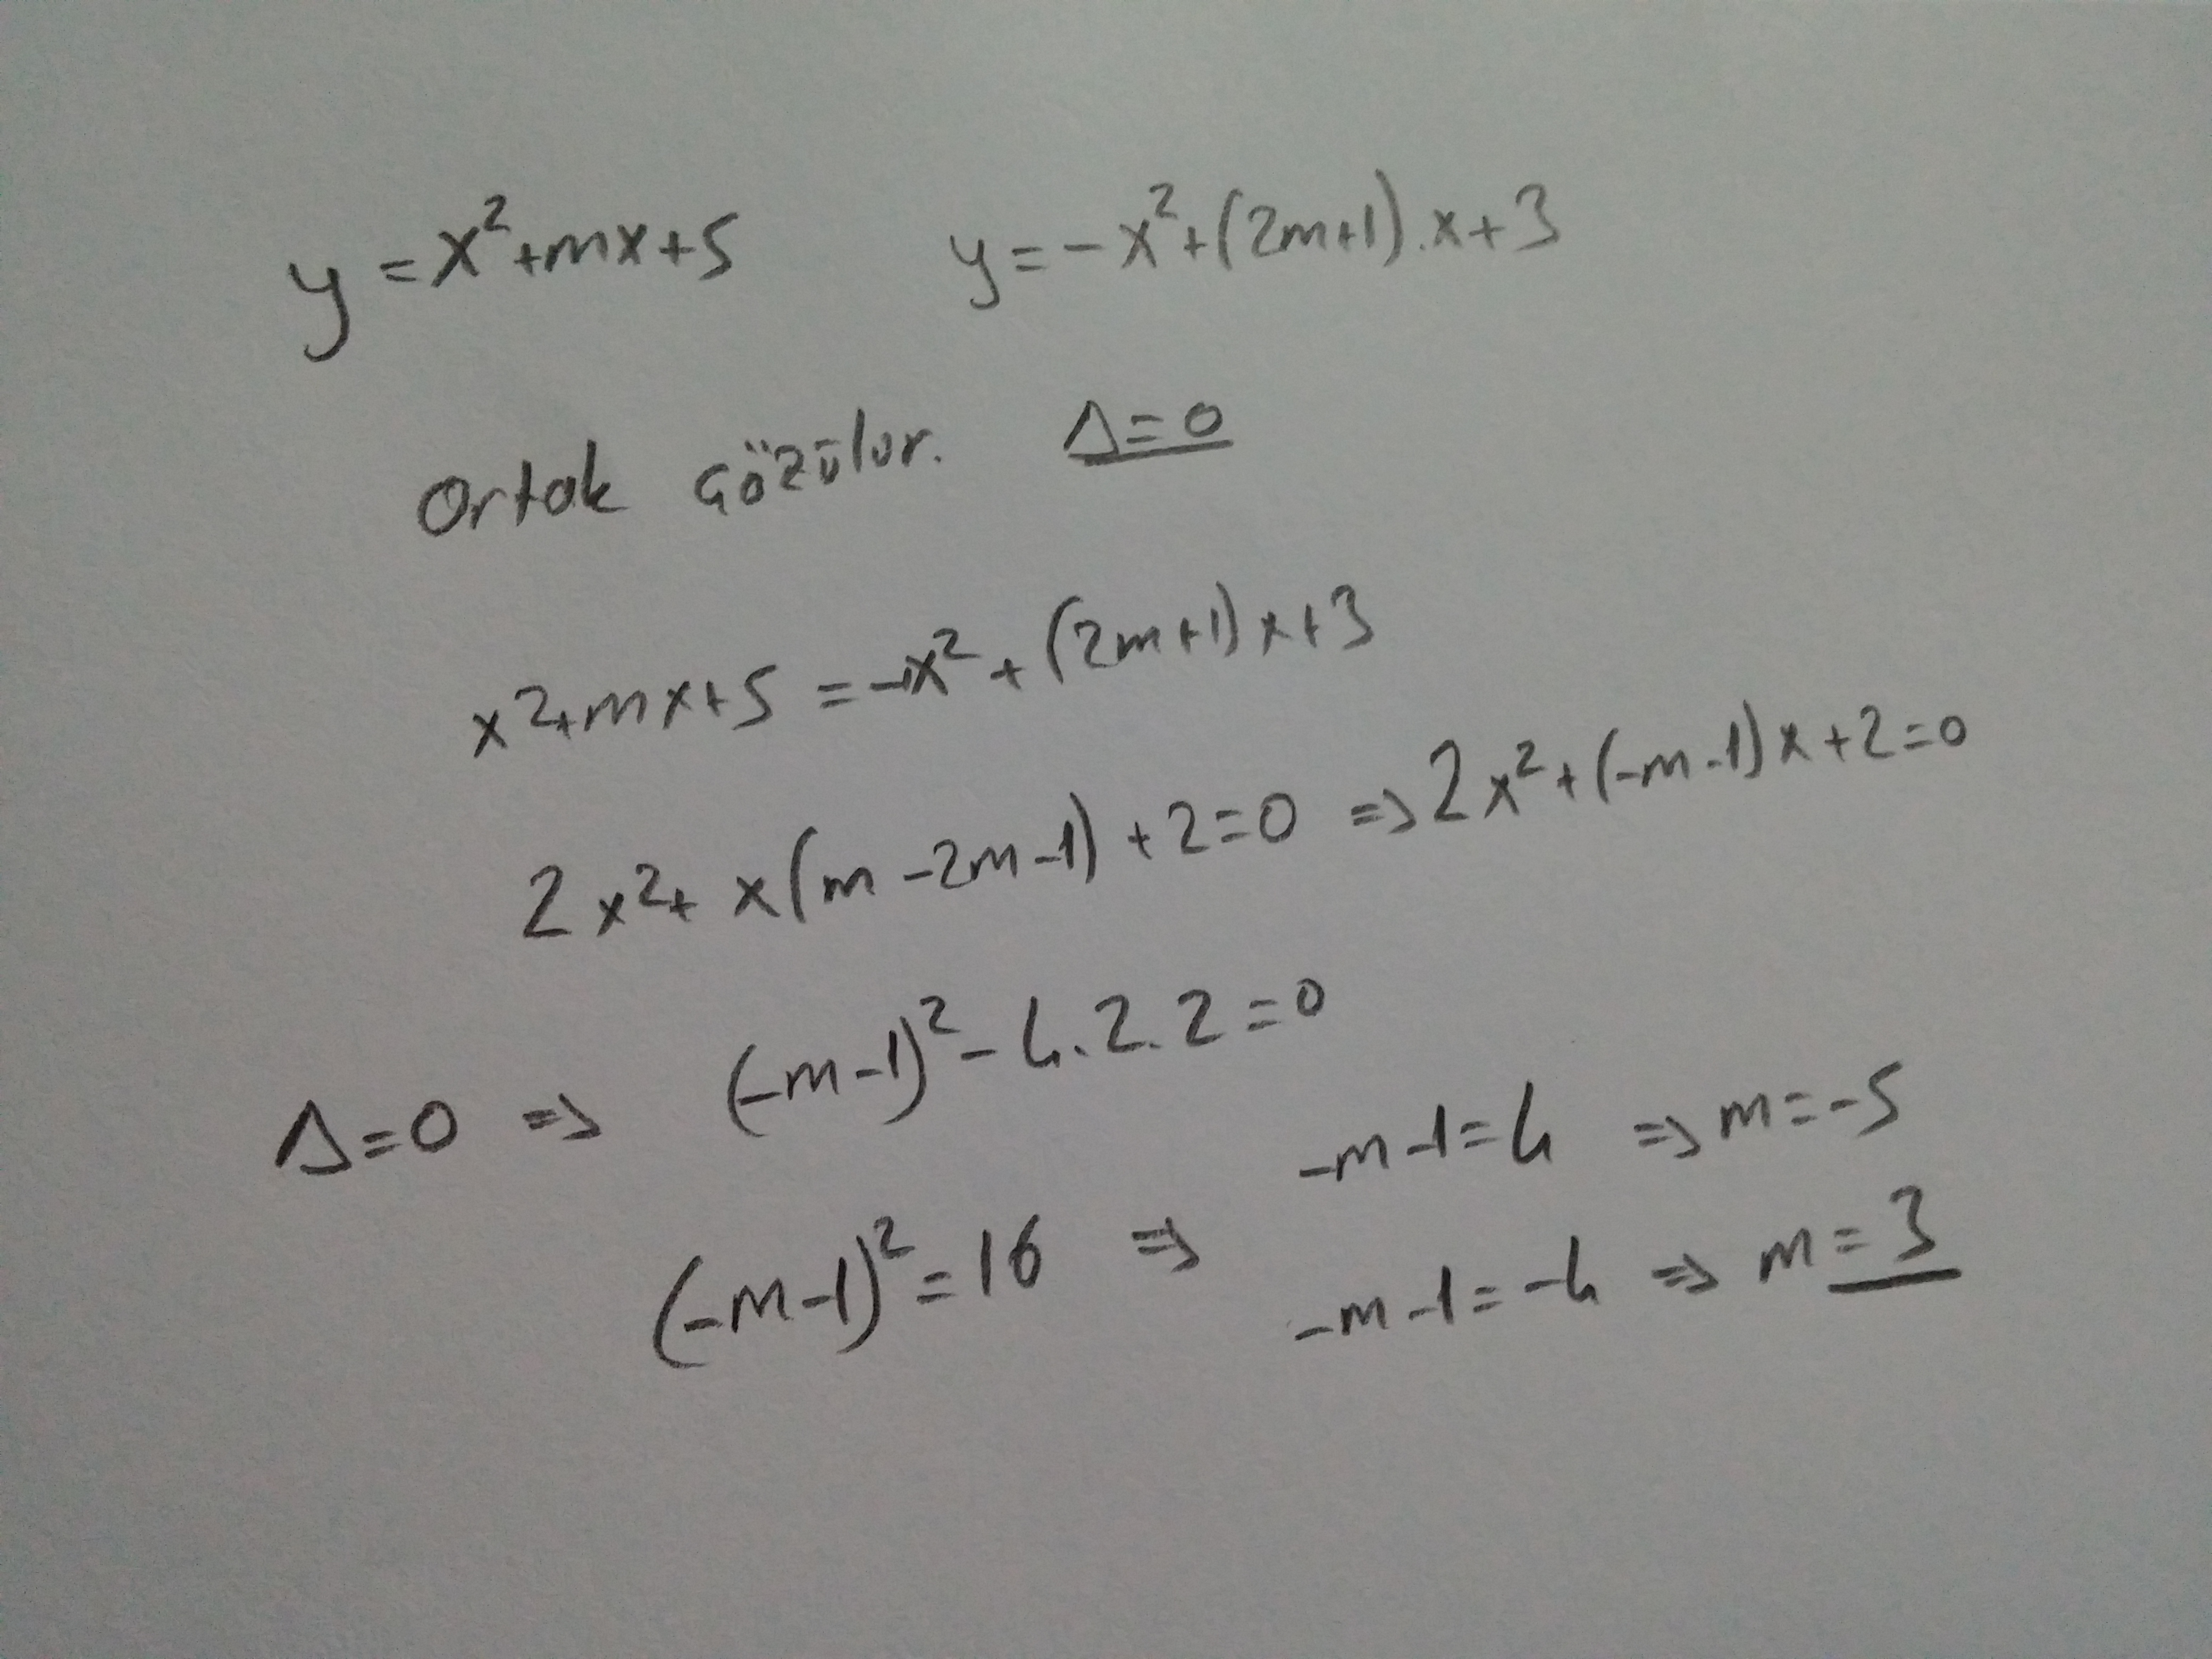 y=x²+mx+5 y=-x²+(2m+1).x+3
Ortak çözülür. Δ=0
x²+mx+5=-x²+(2m+1)x+3
2x²+x(m-2m-1)+2=0 ⇒ 2x²+(-m-1)x+2=0
Δ=0 ⇒ (-m-1)²-4.2.2=0
-m-1=4 ⇒ m=-5
(-m-1)²=16 ⇒
-m-1=-4 ⇒ m=3